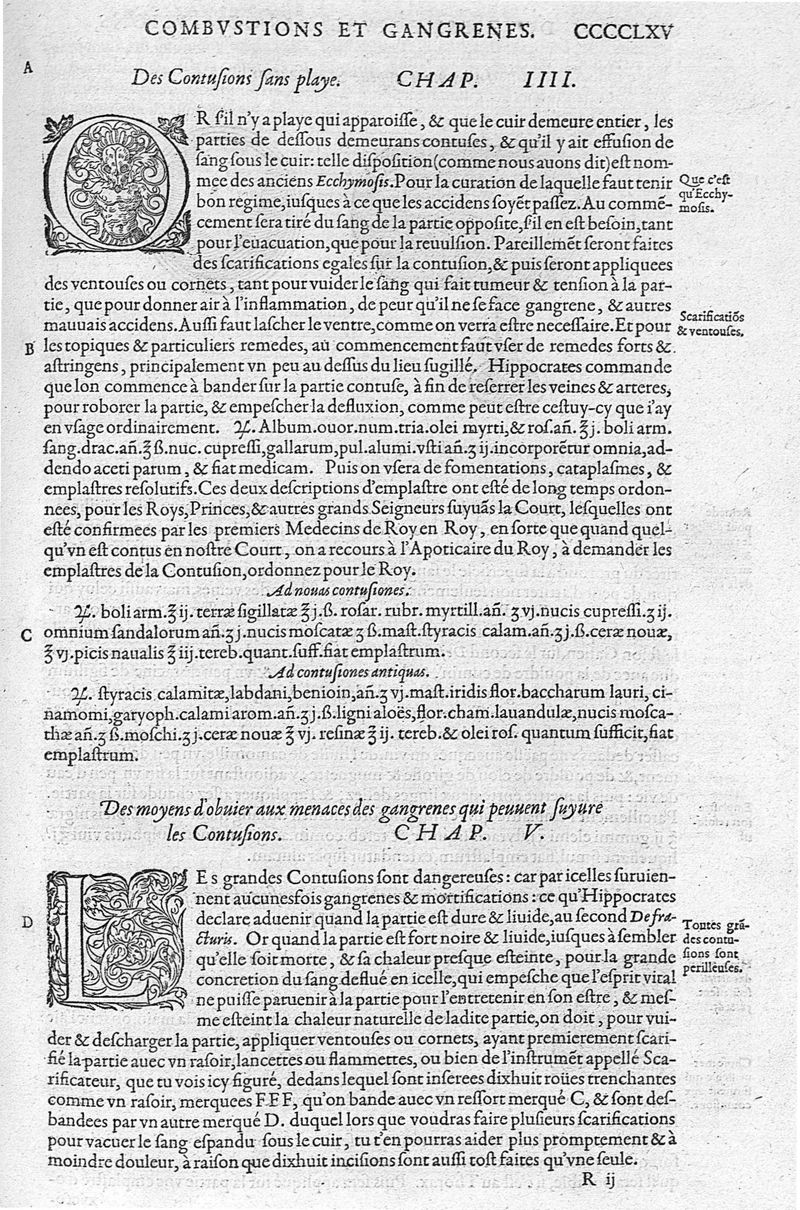 COMBVSTIONS ET GANGRENES. CCCCCLXV
A
Des Contuſions ſans playe. CHAP. IIII.
OR ſ'il n'y a playe qui apparoiſſe, & que le cuir demeure entier, les
parties de deſſous demeurans contuſes, & qu'il y ait effuſion de
ſang ſous le cuir: telle diſpoſition (comme nous auons dit) eſt nom-
mee des anciens Ecchymoſis. Pour la curation de laquelle faut tenir
bon regime, iuſques à ce que les accidens ſoyẽt paſſez. Au commẽ-
cement ſera tiré du ſang de la partie oppoſite, ſ'il en eſt beſoin, tant
pour l'euacuation, que pour la reuulſion. Pareillemẽt ſeront faites
des ſcarifications egales ſur la contuſion, & puis ſeront appliquees
des ventouſes ou cornets, tant pour vuider le ſãg qui fait tumeur & tenſion à la par-
tie, que pour donner air à l'inflammation, de peur qu'il ne ſe face gangrene, & autres
mauuais accidens. Auſſi faut laſcher le ventre, comme on verra eſtre neceſſaire. Et pour
les topiques & particuliers remedes, au commencement faut vſer de remedes forts &
aſtringens, principalement vn peu au deſſus du lieu ſugillé. Hippocrates commande
que lon commence à bander ſur la partie contuſe, à fin de reſerrer les veines & arteres,
pour roborer la partie, & empeſcher la defluxion, comme peut eſtre ceſtuy-cy que i'ay
en vſage ordinairement. ℞. Album. ouor. num. tria. olei myrti, & roſ. añ. ℥j. boli arm.
ſang. drac. añ. ℥ß. nuc. cupreſſi, gallarum, pul. alumi. vſti añ. ʒij. incorporẽtur omnia, ad-
dendo aceti parum, & fiat medicam. Puis on vſera de fomentations, cataplaſmes, &
emplaſtres reſolutifs. Ces deux deſcriptions d'emplaſtre ont eſté de long temps ordon-
nees, pour les Roys, Princes, & autres grands Seigneurs ſuyuãs la Court, leſquelles ont
eſté confirmees par les premiers Medecins de Roy en Roy, en ſorte que quand quel-
qu'vn eſt contus en noſtre Court, on a recours à l'Apoticaire du Roy, à demander les
emplaſtres de la Contuſion, ordonnez pour le Roy.
Que c'eſt
qu'Ecchy-
moſis.
Scarificatiõs
& ventouſes.
B
Ad nouas contuſiones.
℞. boli arm. ℥ij. terræ ſigillatæ ℥j.ß. roſar. rubr. myrtill. añ. ʒvj. nucis cupreſſi. ʒij.
omnium ſandalorum añ. ʒj. nucis moſcatæ ʒß. maſt. ſtyracis calam. añ. ʒj.ß. ceræ nouæ,
℥vj. picis naualis ℥iij. tereb. quant. ſuff. fiat emplaſtrum.
C
Ad contuſiones antiquas.
℞. ſtyracis calamitæ, labdani, benioin, añ. ʒvj. maſt. iridis flor. baccharum lauri, ci-
namomi, garyoph. calami arom. añ. ʒj.ß. ligni aloës, flor. cham. lauandulæ, nucis moſca-
thæ añ. ʒß. moſchi. ʒj. ceræ nouæ ℥vj. reſinæ ℥ij. tereb. & olei roſ. quantum ſufficit, fiat
emplaſtrum.
Des moyens d'obuier aux menaces des gangrenes qui peuuent ſuyure
les Contuſions. CHAP. V.
LES grandes Contuſions ſont dangereuſes: car par icelles ſuruien-
nent aucunesfois gangrenes & mortifications: ce qu'Hippocrates
declare aduenir quand la partie eſt dure & liuide, au ſecond De fra-
cturis. Or quand la partie eſt fort noire & liuide, iuſques à ſembler
qu'elle ſoit morte, & ſa chaleur preſque eſteinte, pour la grande
concretion du ſang deflué en icelle, qui empeſche que l'eſprit vital
ne puiſſe paruenir à la partie pour l'entretenir en ſon eſtre, & meſ-
me eſteint la chaleur naturelle de ladite partie, on doit, pour vui-
der & deſcharger la partie, appliquer ventouſes ou cornets, ayant premierement ſcari-
fié la partie auec vn raſoir, lancettes ou flammettes, ou bien de l'inſtrumẽt appellé Sca-
rificateur, que tu vois icy figuré, dedans lequel ſont inſerees dixhuit roües trenchantes
comme vn raſoir, merquees F.F.F, qu'on bande auec vn reſſort merqué C, & ſont deſ-
bandees par vn autre merqué D. duquel lors que voudras faire pluſieurs ſcarifications
pour vacuer le ſang eſpandu ſous le cuir, tu t'en pourras aider plus promptement & à
moindre douleur, à raiſon que dixhuit inciſions ſont auſſi toſt faites qu'vne ſeule.
D
Toutes grã-
des contu-
ſions ſont
perilleuſes.
R ij